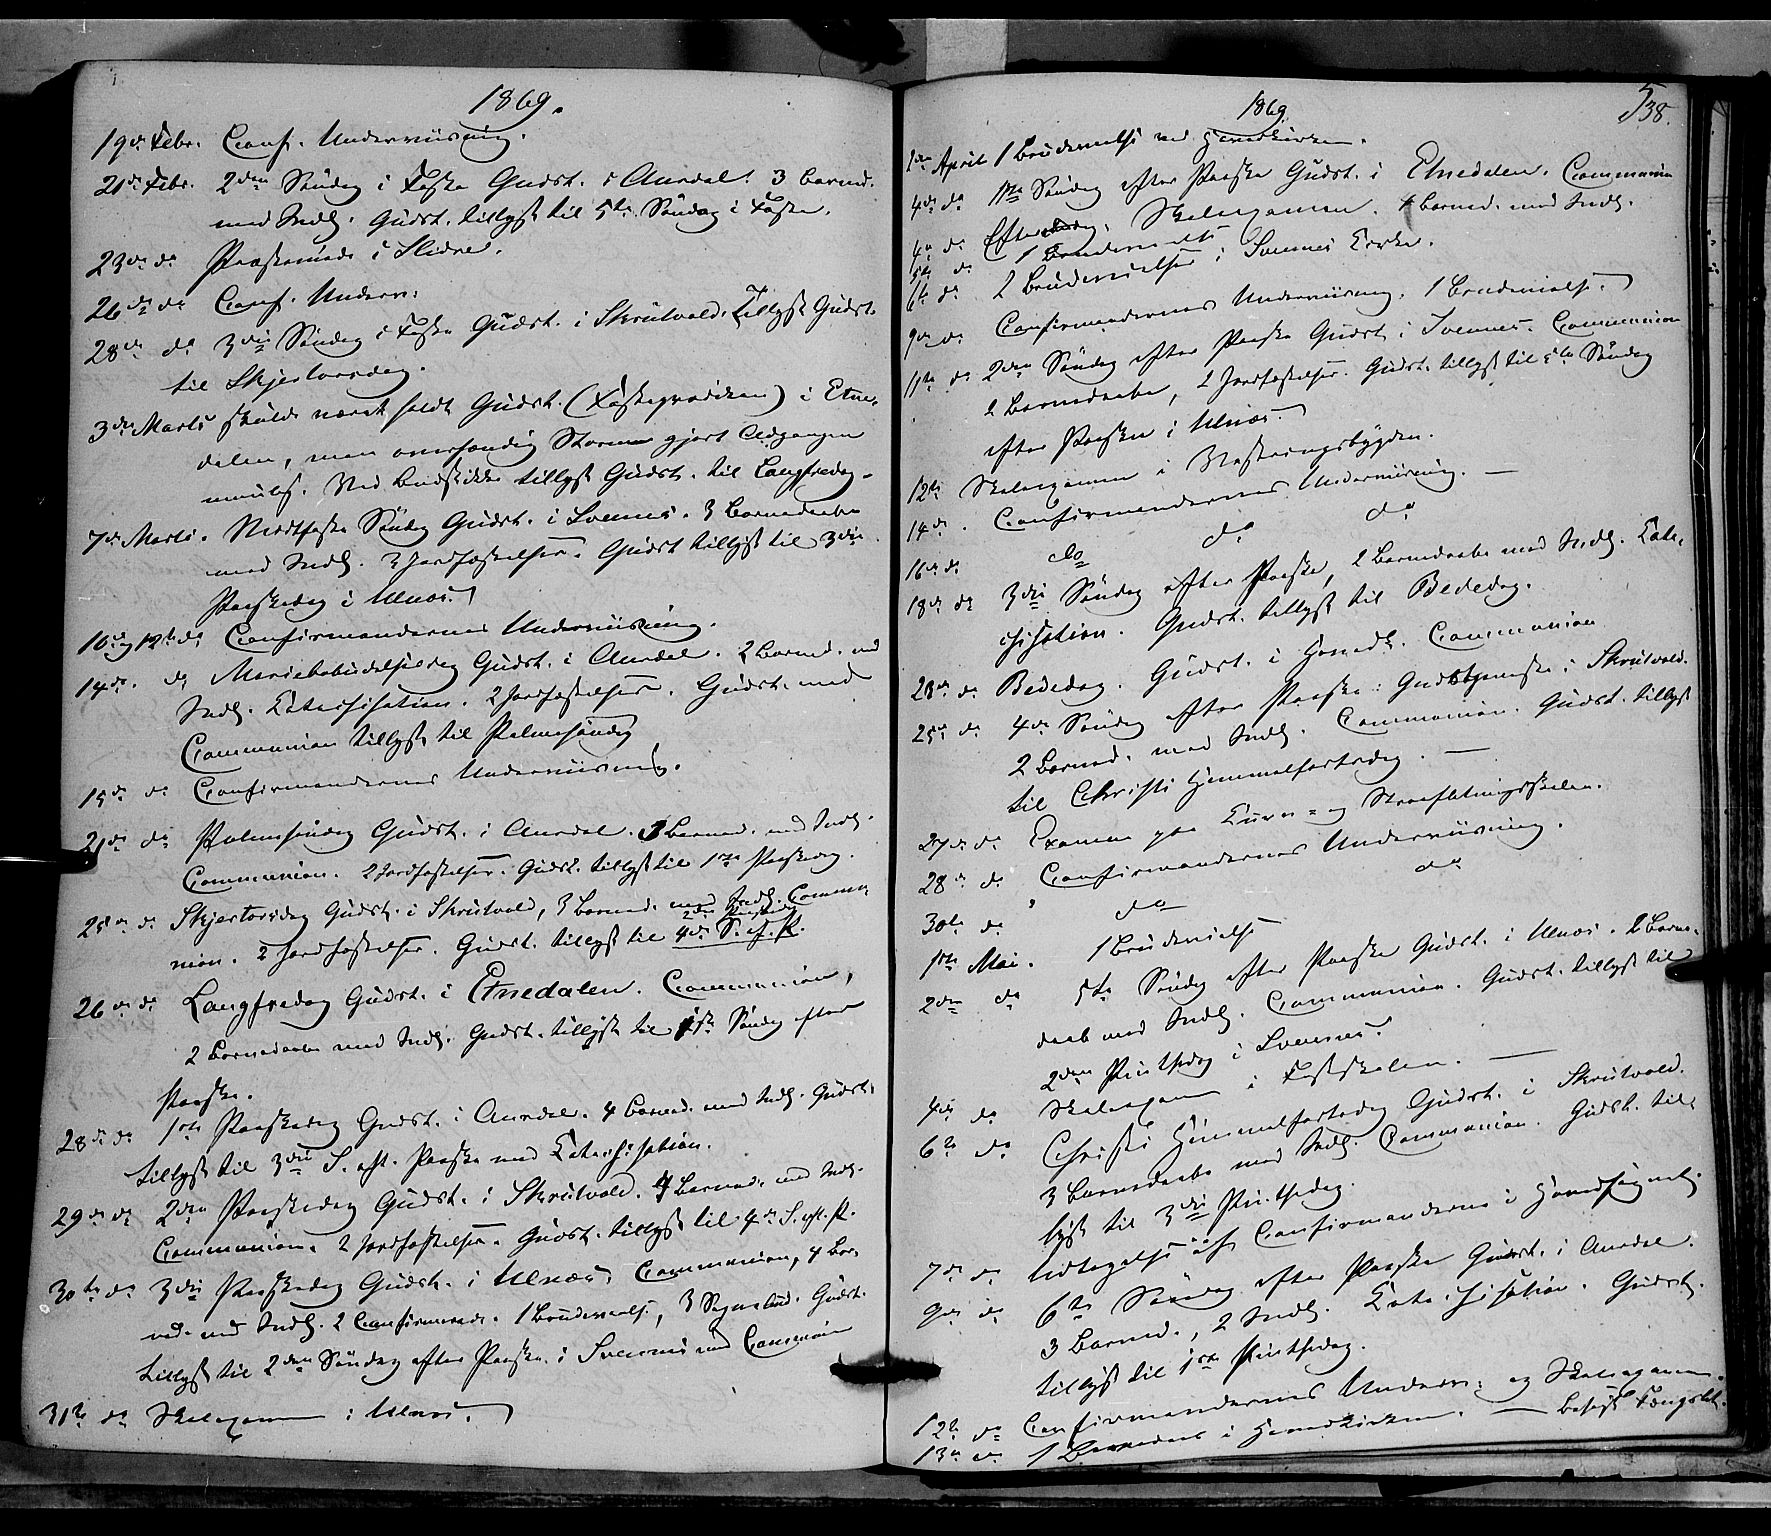 1869.
19de Febr. Conf. Underviisning.
21de Febr. 2den Søndag i Faste Gudst. i Aurdal. 3 Barned.
med Indl. Gudst. tillyst til 5te Søndag i Faste.
23de do Præstemøde i Slidre.
26de do Conf. Underv:
28de do 3die Søndag i Faste Gudst. i Skrutvold. Tillyst Gudst.
til Skjertorsdag.
3die Marts skulde været holdt Gudst. (Fasteprædiken) i Etne-
dalen, men overhændig Storm gjort Adgangen
umulig. Ved Budstikke tillyst Gudst. til Langfredag.
7de Marts. Midtfaste Søndag Gudst. i Svennes. 3 Barnedaabe
med Indl. 3 Jordfæstelser. Gudst tillyst til 3die
Paaskedag i Ulnæs.
10de og 12te do Confirmandernes Underviisning.
14de do Mariebebudelsesdag Gudst. i Aurdal. 2 Barned. med
Indl. Catechisation. 2 Jordfæstelser. Gudst. med
Communion tillyst til Palmesøndag
15de do Confirmandernes Underviisning.
21de do Palmesøndag Gudst. i Aurdal. 3 Barned. med Indl.
Communion. 2 Jordfæstelser. Gudst. tillyst til 1ste Paaskedag.
25de do Skjertorsdag Gudst. i Skrutvold, 3 Barned. med Indl. Commu-
nion. 2 Jordfæstelser. Gudst. tillyst til 2den Paaskedag 4de S. ef. P.
26de do Langfredag Gudst. i Etnedalen. Communion,
2 Barnedaabe med Indl. Gudst. tillyst til 1ste Søndag efter
Paaske.
28de do 1ste Paaskedag Gudst. i Aurdal. 4 Barned. med Indl. Gudst.
tillyst til 3die S. eft. Paaske med Catechisation.
29de do 2den Paaskedag Gudst. i Skrutvold. 4 Barned. med Indl.
Communion. 2 Jordfæstelser. Gudst. tillyst til 4de S. eft. P.
30te do 3die Paaskedag Gudst. i Ulnæs. Communion, 4 Bar-
ned. med Indl. 2 Confirmerede. 1 Brudevielse, 3 Gudst.
tillyst til 2den Søndag efter Paaske i Svennes med Communion
31te do Skoleexamen i Ulnæs.
1869
538.
1ste April 1 Brudevielse ved Hovedkirken.
4de do 1ste Søndag efter Paaske Gudst. i Etnedalen. Communion
4de do Skoleexamen. 4 Barned. med Indl.
5te do 1 Brudevielse
6te do 2 Brudevielser i Svennes Kirke.
9de do Confirmandernes Underviisning. 1 Brudevielse.
11te do 2den Søndag efter Paaske Gudst. i Svennes. Communion
2 Barnedaabe, 2 Jordfæstelser. Gudst. tillyst til 5te Søndag
efter Paaske i Ulnæs
12te Skoleexamen i
14de Confirmandernes Underviisning.
16de do do do do
18de do 3die Søndag efter Paaske, 2 Barnedaabe med Indl. Cate-
chisation. Gudst. tillyst til Bededag.
23de do Bededag. Gudst. i Hovedk. Communion
25de do 4de Søndag efter Paaske. Gudstjeneste i Skrutvold.
2 Barned. med Indl. Communion. Gudst. tillyst
til Christi Himmelfartsdag.
27de do Examen paa
28de do Confirmandernes Underviisning.
30te do do do
1ste Mai. 1 Brudevielse
2den do 5te Søndag efter Paaske Gudst. i Ulnæs. 2 Barne-
daab med Indl. Communion. Gudst. tillyst til
2den Pintsedag i Svennes.
4de do Skoleexam i Fastskolen.
6te do Christi Himmelfartsdag Gudst. i Skrutvold.
3 Barnedaabe med Indl. Communion. Gudst. til-
lyst til 3die Pintsedag.
7de do Udtagelse af Confirmanderne i Hovedsognet.
9de do 6te Søndag efter Paaske Gudst. i Aurdal.
3 Barned., 2 Indl. Catechisation. Gudst.
tillyst til 1ste Pintsedag.
12te do Confirmandernes Underv. og Skoleexamen.
13de do 1 i Hovedkirken. — besøgt Fængslet.